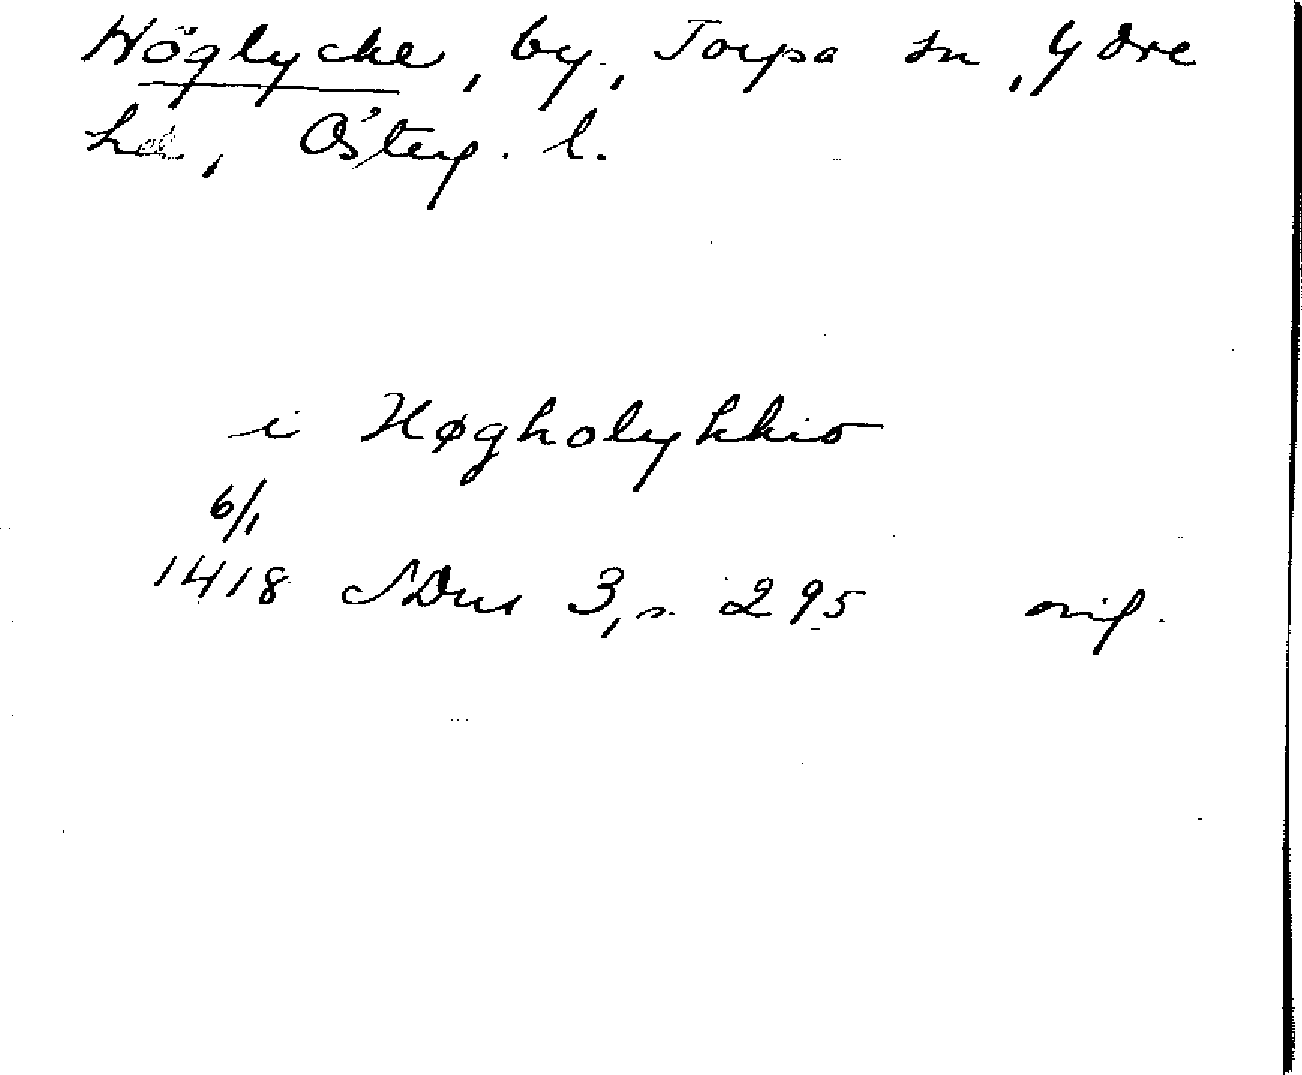 Höglycke, by, Torpa sn, Ydre
hd, Österg. l.
i Høgholykkio
6/1
1418 SDns 3, s. 295 orig.